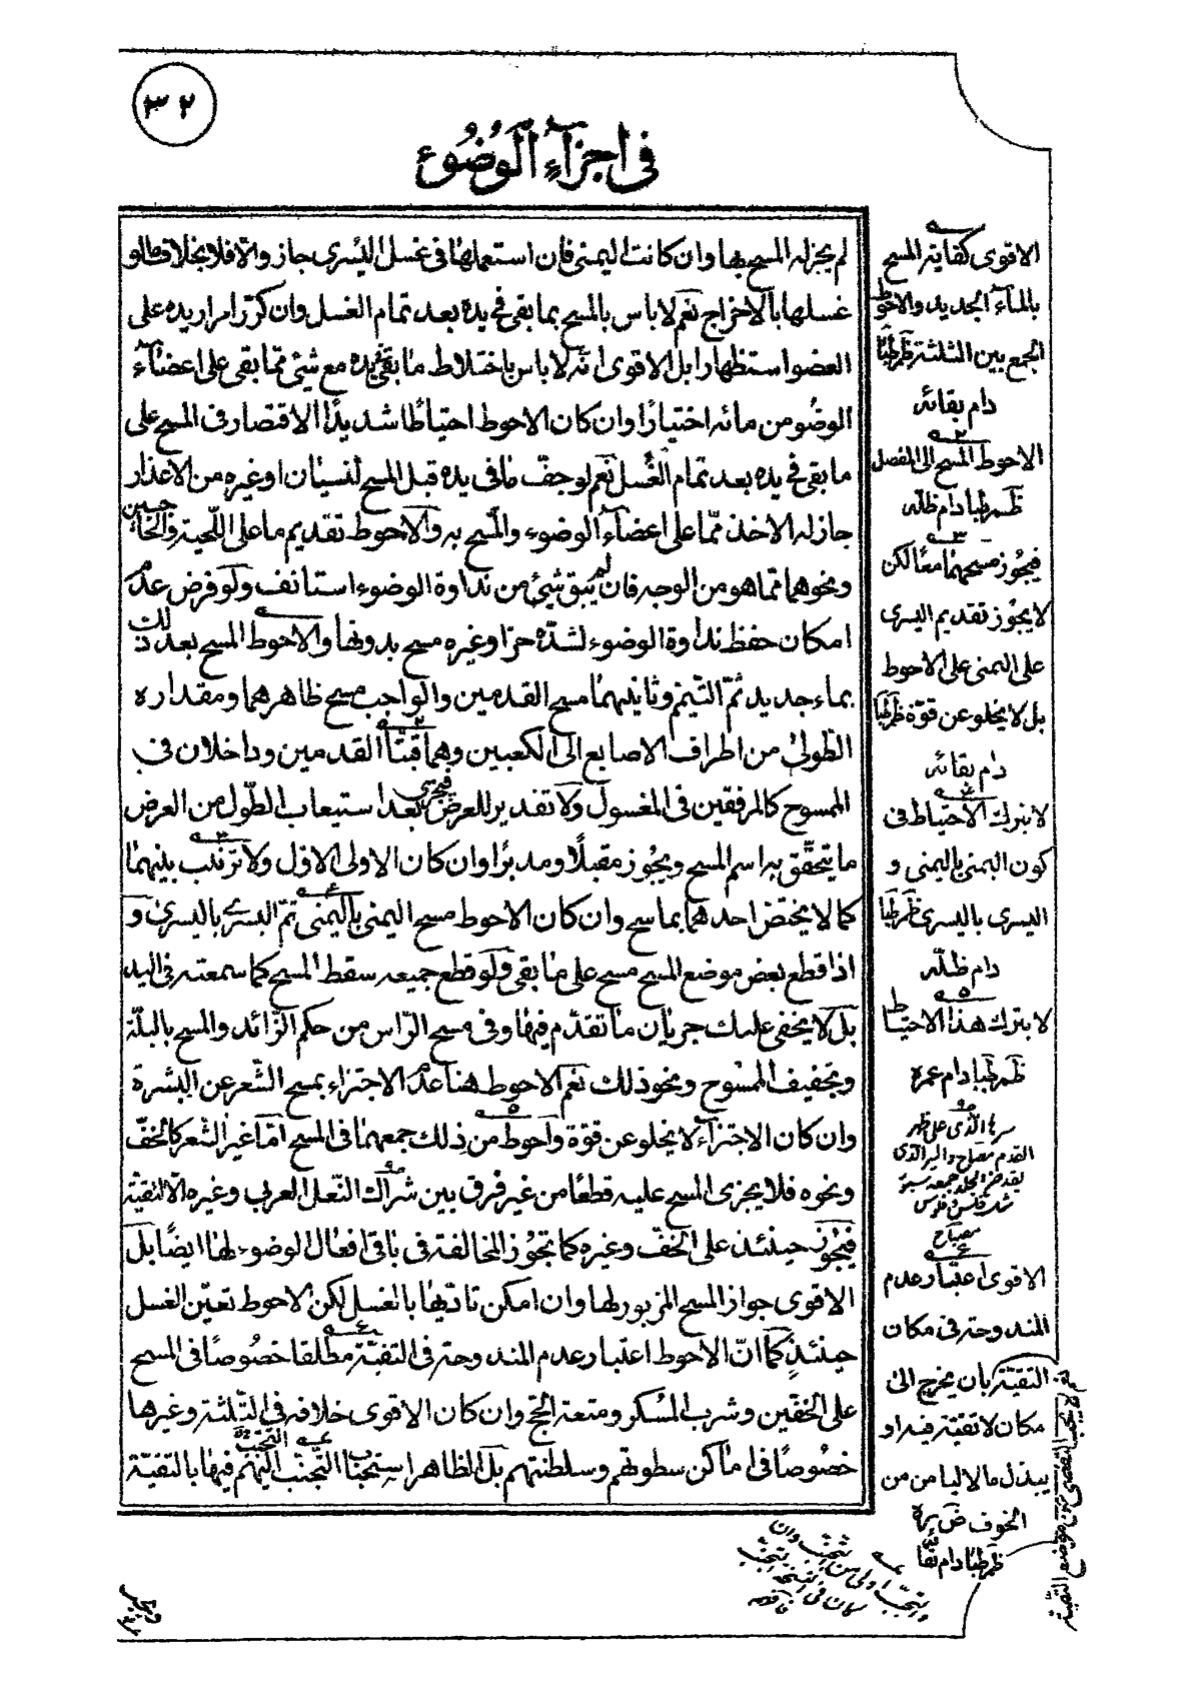 ٣٢
في اجزآء الوُضُوء
لم يجز له المسح بها وان كانت اليمنى فان استعملها في غسل اليسرى جاز والّا فلا بخلاف ما لو
غسلها بالاخراج نعم لا باس بالمسح بما بقى في يده بعد تمام الغسل وان كرّر امرار يده على
العضو استظهارا بل الاقوى انّه لا باس باختلاط ما بقى في يده مع شئ ممّا بقى على اعضآء
الوضُوء من مائه اختيارًا وان كان الاحوط احتياطًا شديدًا الاقتصار في المسح على
ما بقى في يده بعد تمام الغُسل نعم لو جفّ ما في يده قبل المسح لنسيان او غيره من الاعذار
جاز له الاخذ ممّا على اعضآء الوضوء والمسح به والاحوط تقديم ما على اللّحية والحاجبين
ونحوهما ممّا هو من الوجه فان لم يبق شئ من نداوة الوضوء استانف ولو فرض عدم
امكان حفظ نداوة الوضوء لشدّة حرّ او غيره مسح بدونها والاحوط المسح بعد ذلك
بماء جديد ثمّ التيمّم وثانيهما مسح القدمين والواجب مسح ظاهرهما ومقداره
الطولىّ من اطراف الاصابع الى الكعبين وهما قبّتا القدمين وداخلان في
الممسوح كالمرفقين في المغسول ولا تقدير للعرض فيجزى بعد استيعاب الطّول من العرض
ما يتحقّق به اسم المسح ويجُوز مقبلًا ومدبرًا وان كان الاولى الاوّل ولا ترتيب بينهما
كما لا يختصّ احدهما بماسح وان كان الاحوط مسح اليمنى باليمنى ثمّ اليسرى باليسرى و
اذا قطع بعض موضع المسح مسح على ما بقى ولو قطع جميعه سقط المسح كما سمعته في اليد
بل لا يخفى عليك جريان ما تقدّم فيها وفى مسح الرّاس من حكم الزّائد والمسح بالبلّة
وتجفيف الممسُوح ونحو ذلك نعم الاحوط هنا عدم الاجتزاء بمسح الشّعر عن البشرة
وان كان الاجتزآء لا يخلو عن قوّة واحوط من ذلك جمعهما في المسح امّا غير الشّعر كالخفّ
ونحوه فلا يجزى المسح عليه قطعًا من غير فرق بين شراك النّعل العربى وغيره الّا لتقيّة
فيجُوز حينئذ على الخفّ وغيره كما تجوز المخالفة في باقى افعال الوضوء لها ايضًا بل
الاقوى جواز المسح المزبور لها وان امكن تادّيها بالغسل لكن الاحوط تعيّن الغسل
حينئذٍ كما انّ الاحوط اعتبار عدم المندوحة في التقيّة مطلقا خصُوصًا في المسح
على الخفّين وشرب المُسكر ومتعة الحجّ وان كان الاقوى خلافه في الثلثة وغيرها
خصُوصًا في اماكن سطوتهم وسلطنتهم بل الظاهر استحباب التجنّب اليهم فيها بالتقيّة
الاقوى كفاية المسح
بالمآء الجديد والاحوط
الجمع بين الثلثة ظم طبا
دام بقائه
الاحوط المسح الى المفصل
ظم طبا دام ظلّه
فيجُوز مسحهما معًا لكن
لا يجُوز تقديم اليسرى
على اليمنى على الاحوط
بل لا يخلو عن قوّة ظم طبا
دام بقائه
لا يترك الاحتياط في
كون اليمنى باليمنى و
اليسرى باليسرى ظم طبا
دام ظلّه
لا يترك هذا الاحتياط
ظم طبا دام عمره
القدم مصباح والسير الذى
مصباح
الاقوى اعتبار عدم
المندوحة في مكان
التقيّة بان يخرج الى
مكان لا تقيّة فيه او
يبذل مالا ليامن من
الخوف
ظم طبا دام بقا